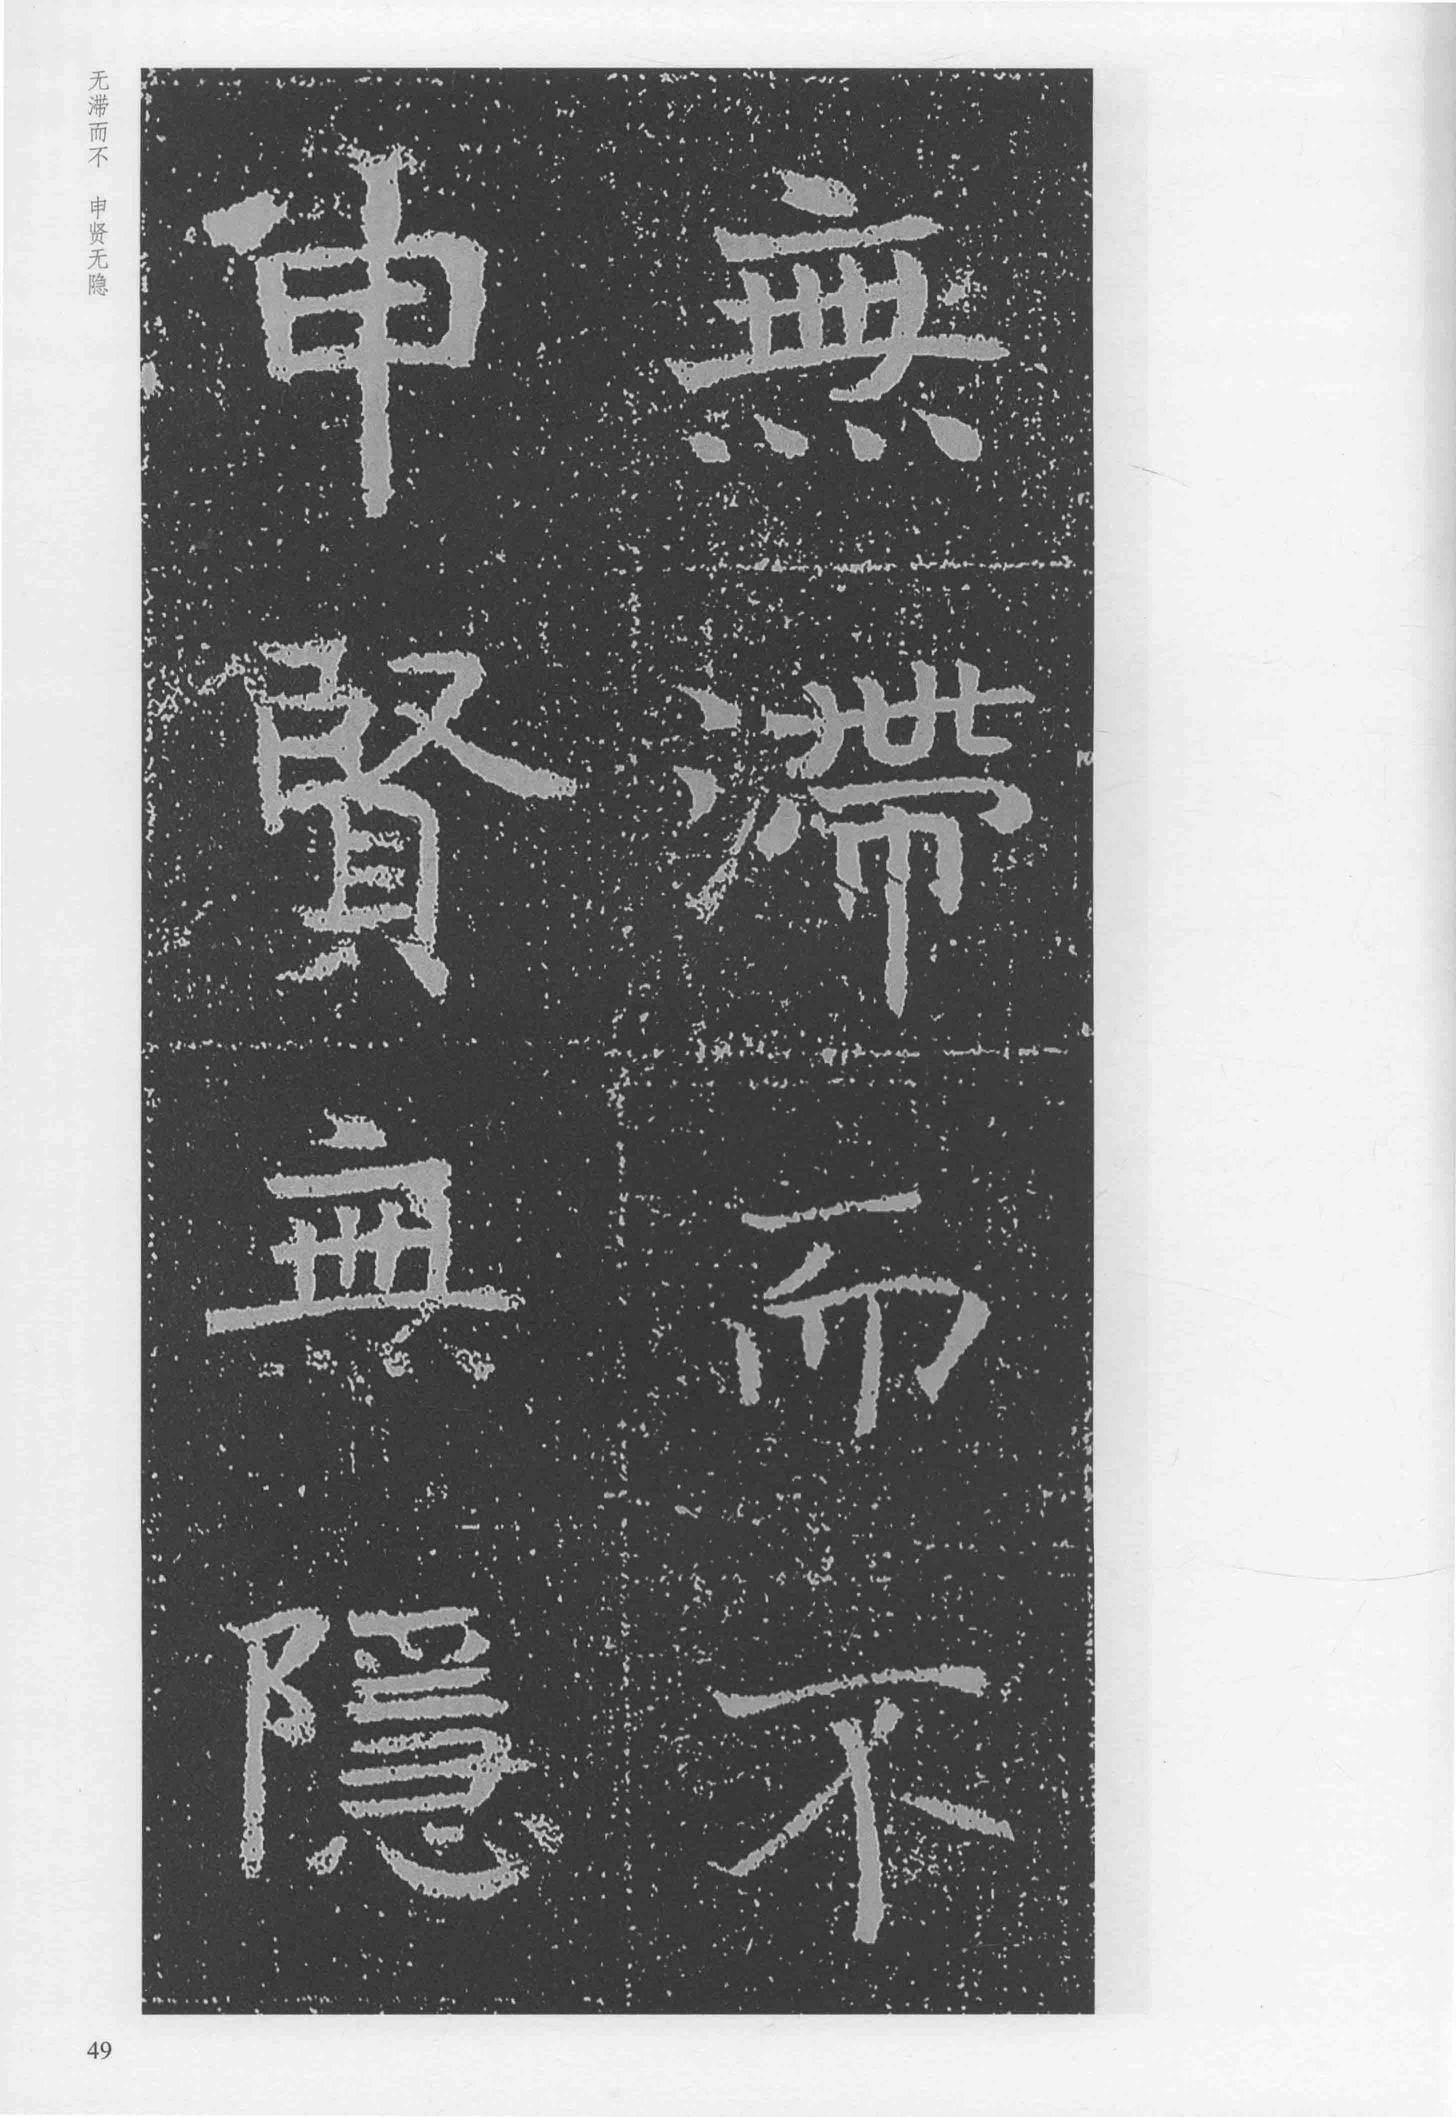 無滯而不
申賢無隱
无滞而不 申贤无隐
49